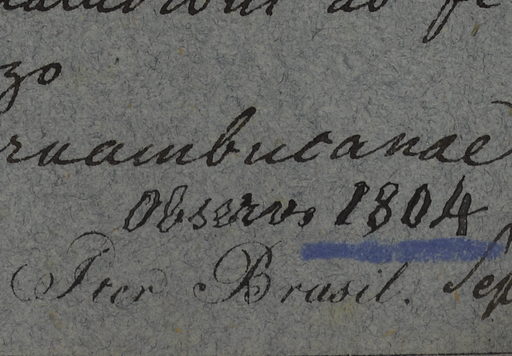 zo
rnambucanae
Observ. 1804
Iter Brasil. Sep